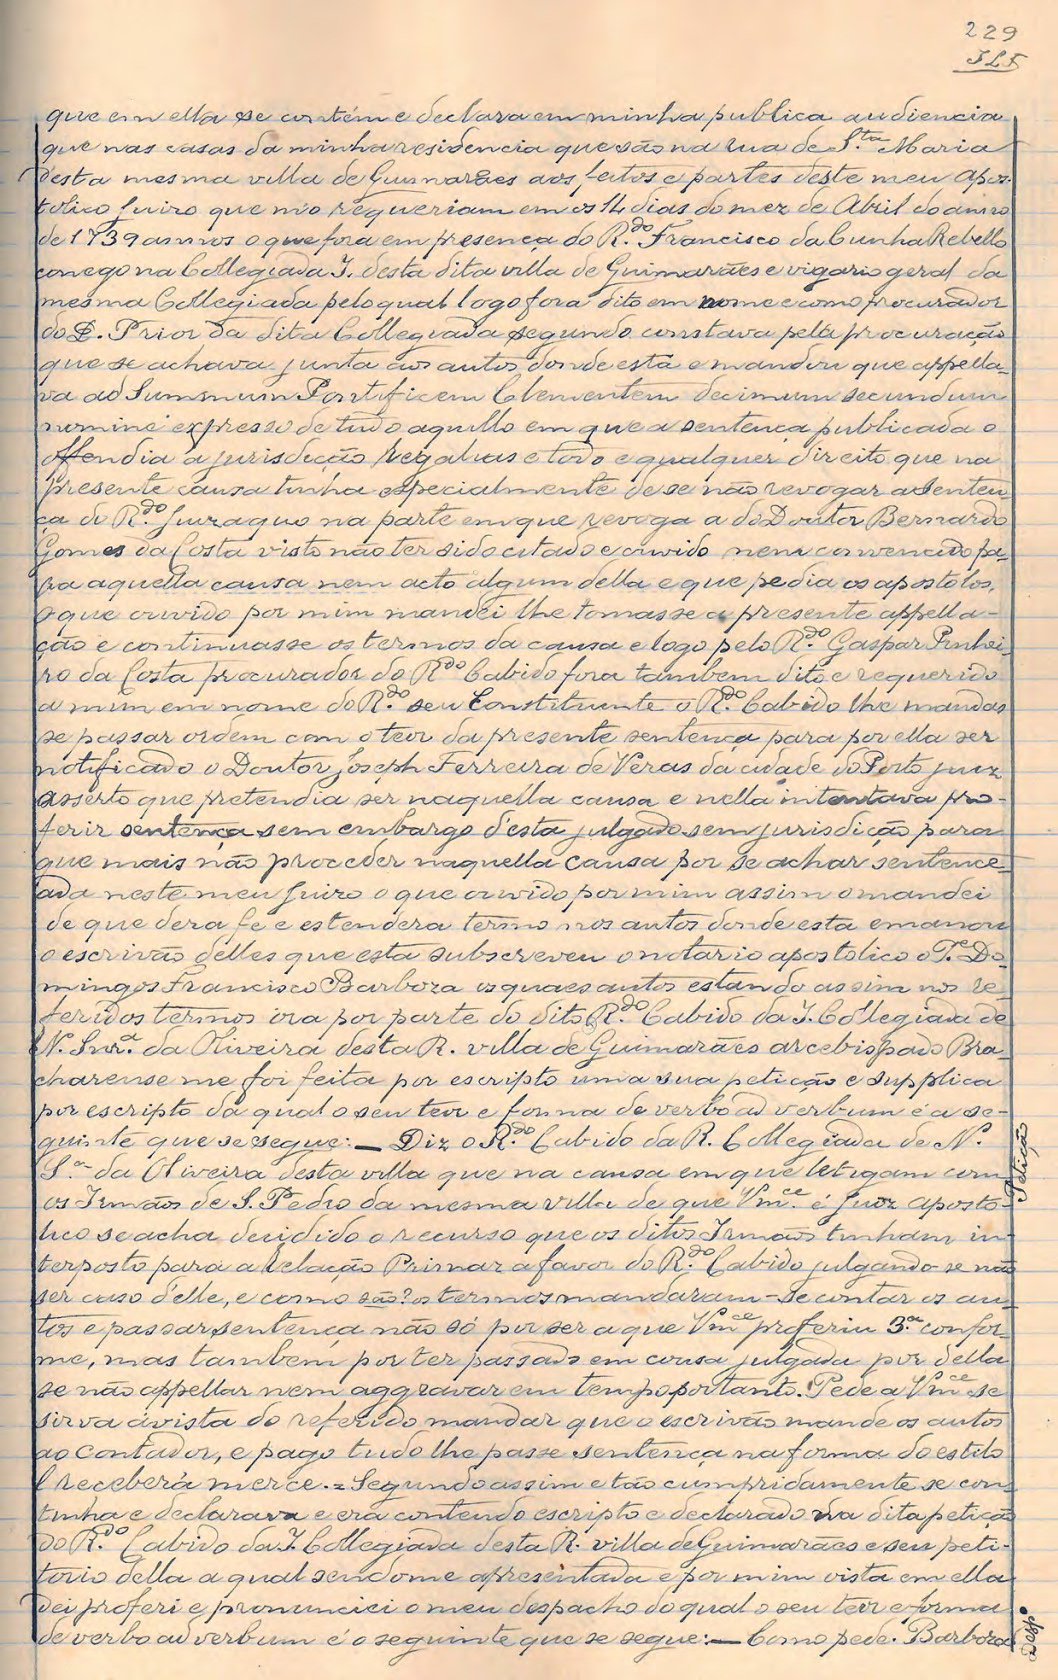 229
JLF
que em ella se contém e declara em minha publica audiencia
que nas casas da minha residencia que são na rua de S.ta Maria
desta mesma villa de Guimarães aos feitos e partes deste meu apos-
tolico Juizo que m'o requeriam em os 14 dias do mez de Abril do anno
de 1739 annos o que fora em presença do R.do Francisco da Cunha Rebello
conego na Collegiada I. desta dita villa de Guimarães e vigario geral da
mesma Collegiada pelo qual logo fora dito em nome e como procurador
do D. Prior da dita Collegiada segundo constava pela procuração
que se achava junta aos autos donde esta emandou que appella-
va ad Summum Pontificem Clementem decimum secundum
nomine expresso de tudo aquillo em que a sentença publicada o
offendia a jurisdicção regalias e todo e qualquer direito que na
presente causa tinha especialmente de se não revogar a senten-
ça do R.do Juiz a quo na parte em que revoga a do Doutor Bernardo
Gomes da Costa visto não ter sido citado e ouvido nem convencido pa-
ra aquella causa nem acto algum della e que pedia os apostolos,
o que ouvido por mim mandei lhe tomasse a presente appella-
ção e continuasse os termos da causa e logo pelo R.do Gaspar Pinhei-
ro da Costa procurador do R.do Cabido fora tambem dito e requerido
a mim em nome do R.do seu Constituinte o R.do Cabido lhe mandas-
se passar ordem com o teor da presente sentença para por ella ser
notificado o Doutor Joseph Ferreira de Veras da cidade do Porto juiz
asserto que pretendia ser naquella causa e nella intentava pro-
ferir sentença sem embargo d'esta julgado sem jurisdicção para
que mais não proceder naquella causa por se achar sentence-
ada neste meu Juizo o que ouvido por mim assim o mandei
de que dera fe e estendera termo nos autos donde esta emanou
o escrivão delles que esta subscreveu o notario apostolico o P.e Do-
mingos Francisco Barboza os quaes autos estando assim nos re-
feridos termos ora por parte do dito R.do Cabido da I. Collegiada de
N. Snr.a da Oliveira desta R. villa de Guimarães arcebispado Bra-
charense me foi feita por escripto uma sua petição e supplica
por escripto da qual o seu teor e forma de verbo ad verbum é a se-
guinte que se segue: — Diz o R.do Cabido da R. Collegiada de N.
S.a da Oliveira desta villa que na causa em que letigam com
Petição
os Irmãos de S. Pedro da mesma villa de que Vm.ce é Juiz aposto-
lico se acha decidido o recurso que os ditos Irmãos tinham in-
terposto para a Relação Primaz a favor do R.do Cabido julgando-se não
ser caso d'elle, e como são? os termos mandaram-se contar os au-
tos e passar sentença não só por ser a que Vm.ce proferiu 3.a confor-
me, mas tambem por ter passado em cousa julgada por della
se não appellar nem aggravar em tempo portanto. Pede a Vm.ce se
sirva ávista do referido mandar que o escrivão mande os autos
ao contador, e pago tudo lhe passe sentença na forma do estilo
E receberá merce. = Segundo assim e tão cumpridamente se con-
tinha e declarava e era contendo escripto e declarado na dita petição
do R.do Cabido da I. Collegiada desta R. villa de Guimarães e seu peti-
torio della a qual sendo me apresentada e por mim vista em ella
dei proferi e pronunciei o meu despacho do qual o seu teor e forma
de verbo ad verbum é o seguinte que se segue: — Como pede. Barboza
Desp.o